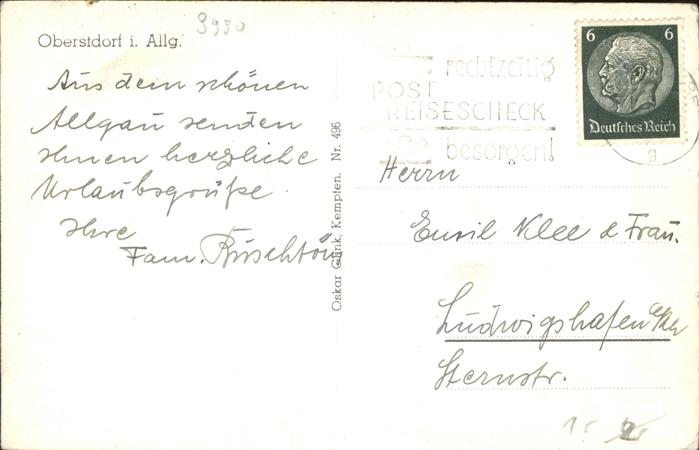 3980
Oberstdorf i. Allg.
Aus dem schönen
Allgäu senden
Ihnen herzliche
Urlaubsgrüße
Ihre
Fam.
Oskar Kempten. Nr. 496
rechtzeitig
POST
REISESCHECK
besorgen!
6 6
Deutsches Reich
g
Herrn
Emil Klee & Frau.
Ludwigshafen a/Rh
Sternstr.